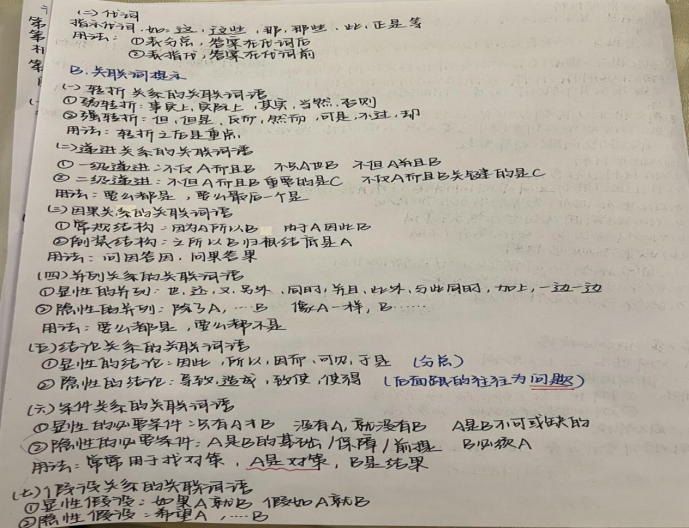 (二)代词
指示代词,如:这,这些,那,那些,此,正是等
用法:①表分总,答案在代词后
②表指代,答案在代词前
B.关联词提示
(一)转折关系的关联词语
①弱转折:事实上,实际上,其实,当然,否则
②强转折:但,但是,反而,然而,可是,不过,却
用法:转折之后是重点
(二)递进关系的关联词语
①一级递进:不仅A而且B 不与A也B 不但A并且B
②二级递进:不但A而且B重要的是C 不仅A而且B关键的是C
用法:要么都是,要么最后一个是
(三)因果关系的关联词语
①常规结构:因为A所以B 由于A因此B
②倒装结构:之所以B归根结底是A
用法:问因答因,问果答果
(四)并列关系的关联词语
①显性的并列:也,还,又,另外,同时,并且,此外,与此同时,加上,一边一边
②隐性的并列:除了A,…B 像A一样,B……
用法:要么都是,要么都不是
(五)结论关系的关联词语
①显性的结论:因此,所以,因而,可见,于是 (分总)
②隐性的结论:导致,造成,致使,使得 (后面跟的往往为问题)
(六)条件关系的关联词语
①显性的必要条件:只有A才B 没有A,就没有B A是B不可或缺的
②隐性的必要条件:A是B的基础/保障/前提 B必须A
用法:常常用于找对策,A是对策,B是结果
(七)假设关系的关联词语
①显性假设:如果A就B 假如A就B
②隐性假设:希望A,……B